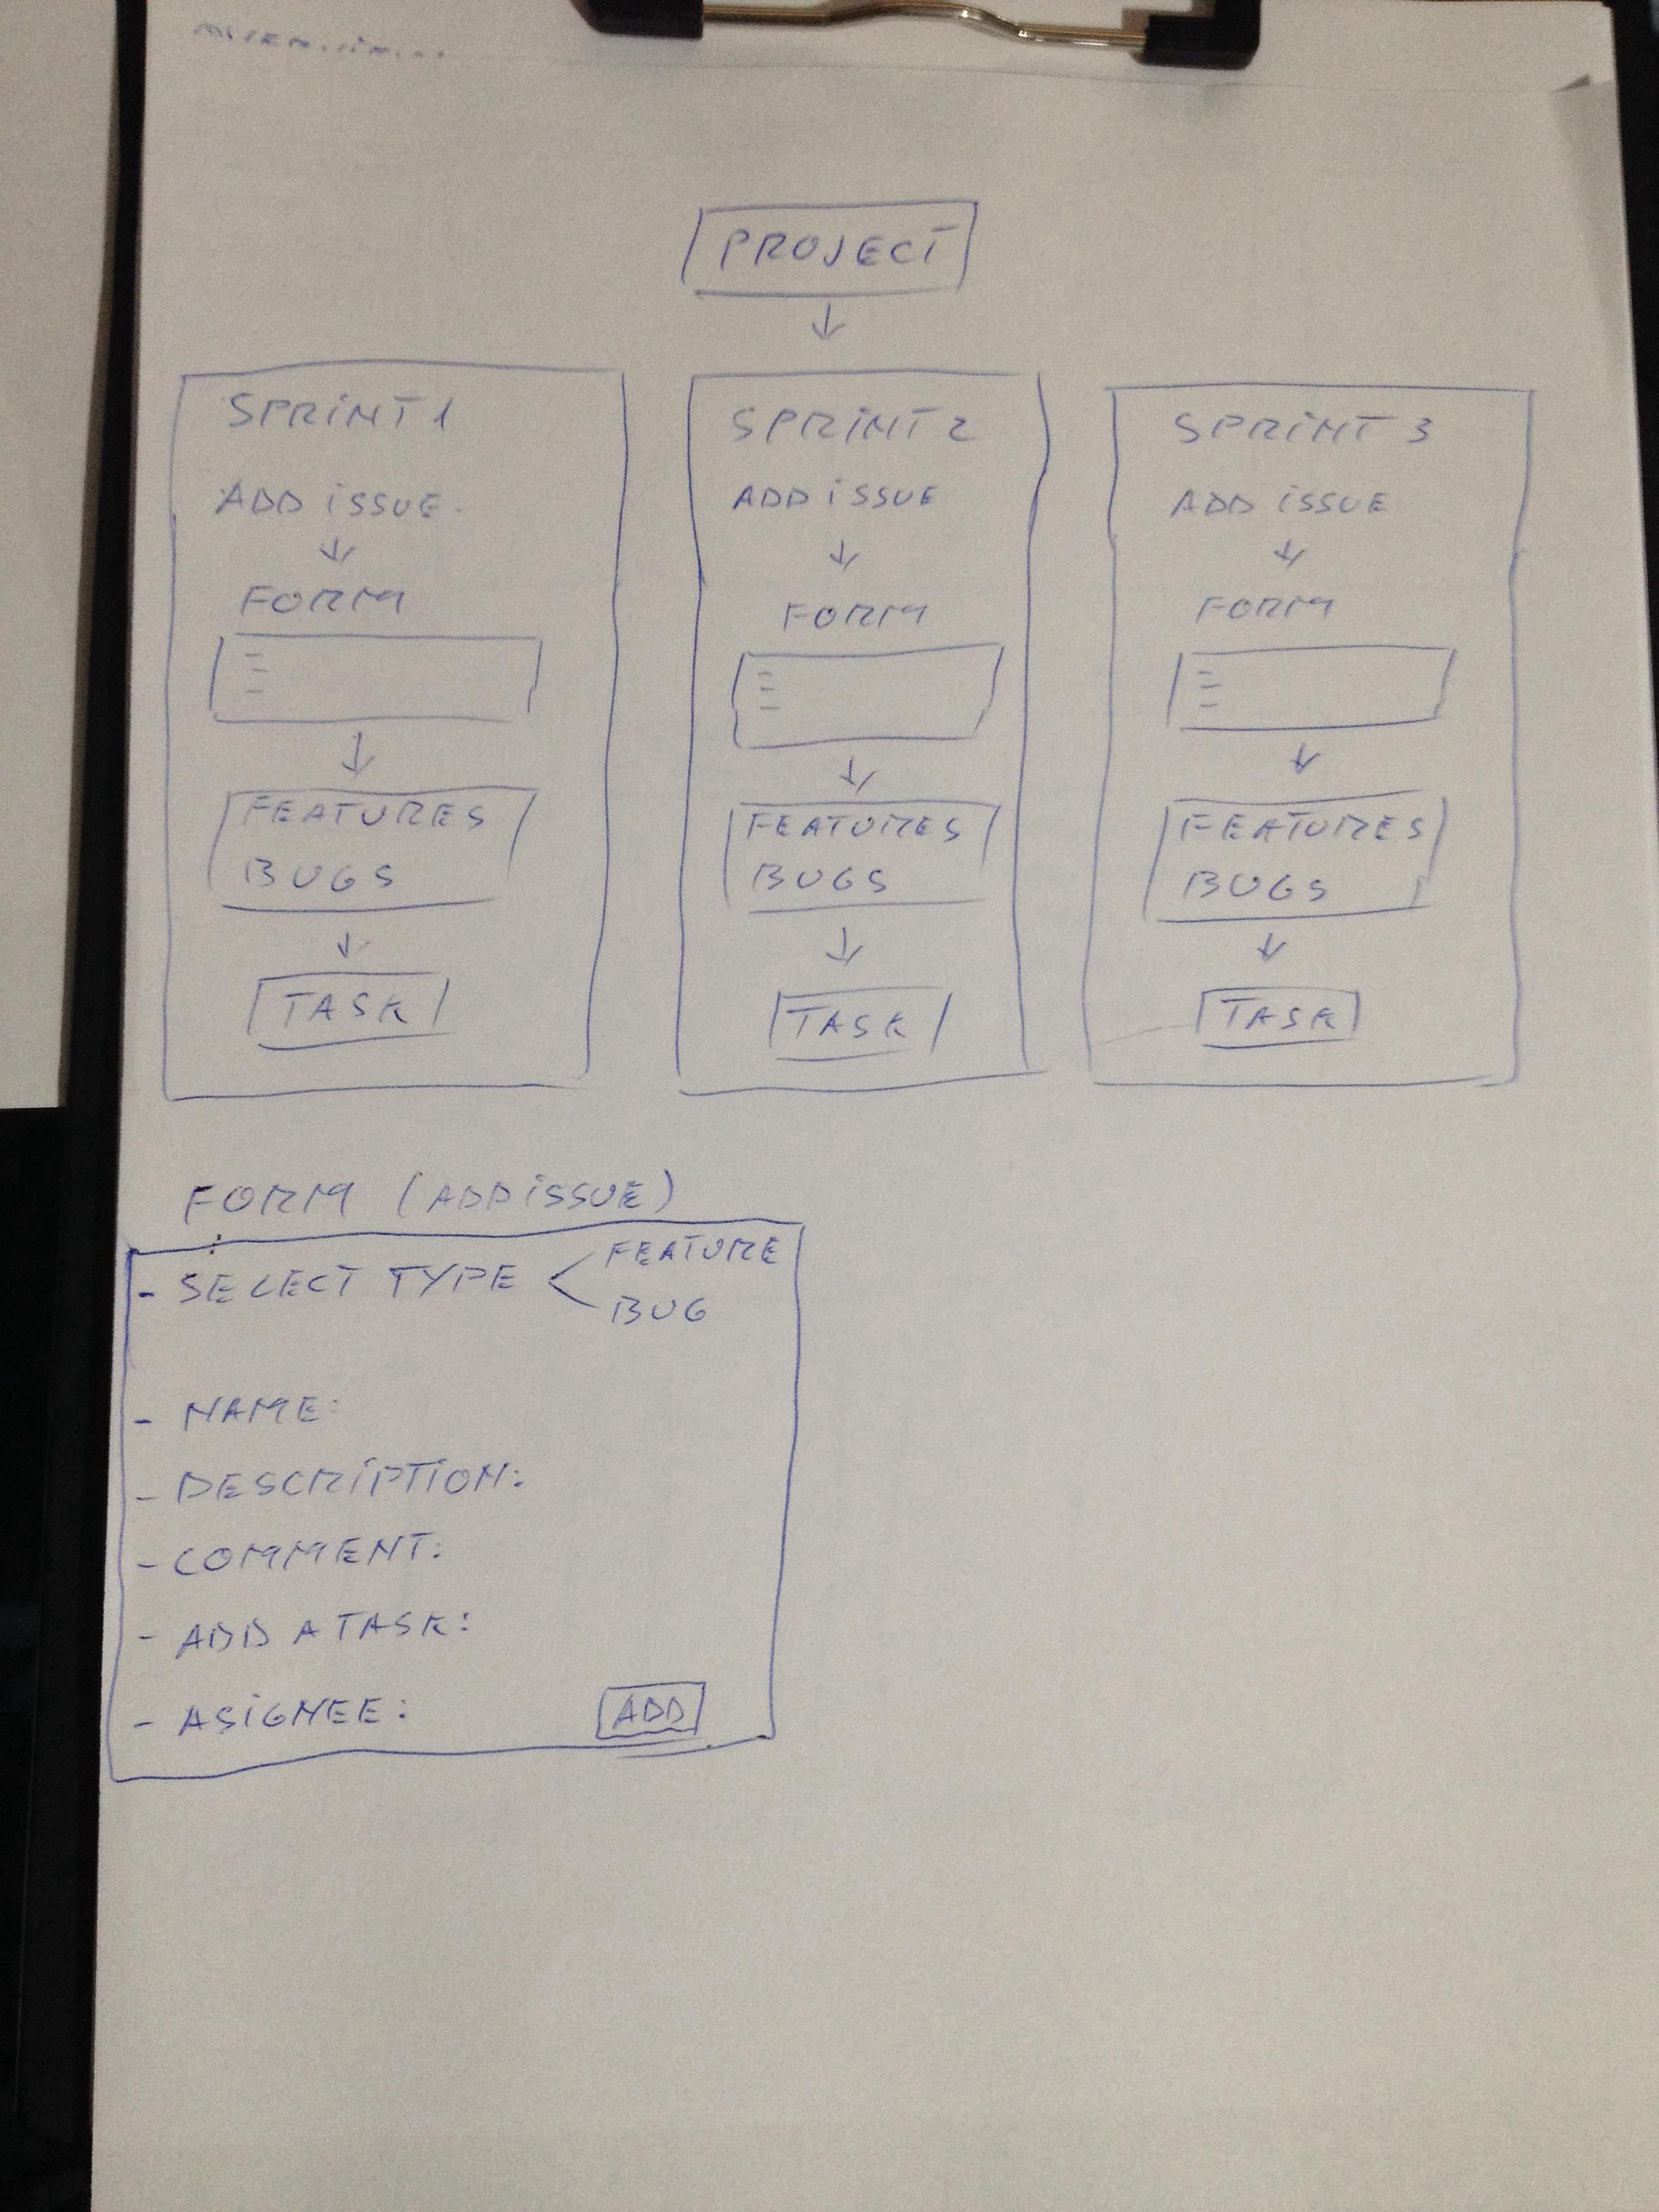 PROJECT
SPRINT 1
ADD ISSUE
FORM
FEATURES
BUGS
TASK
SPRINT 2
ADD ISSUE
FORM
FEATURES
BUGS
TASK
SPRINT 3
ADD ISSUE
FORM
FEATURES
BUGS
TASK
FORM (ADD ISSUE)
- SELECT TYPE < FEATURE
BUG
- NAME:
- DESCRIPTION:
- COMMENT:
- ADD A TASK:
- ASIGNEE:
ADD